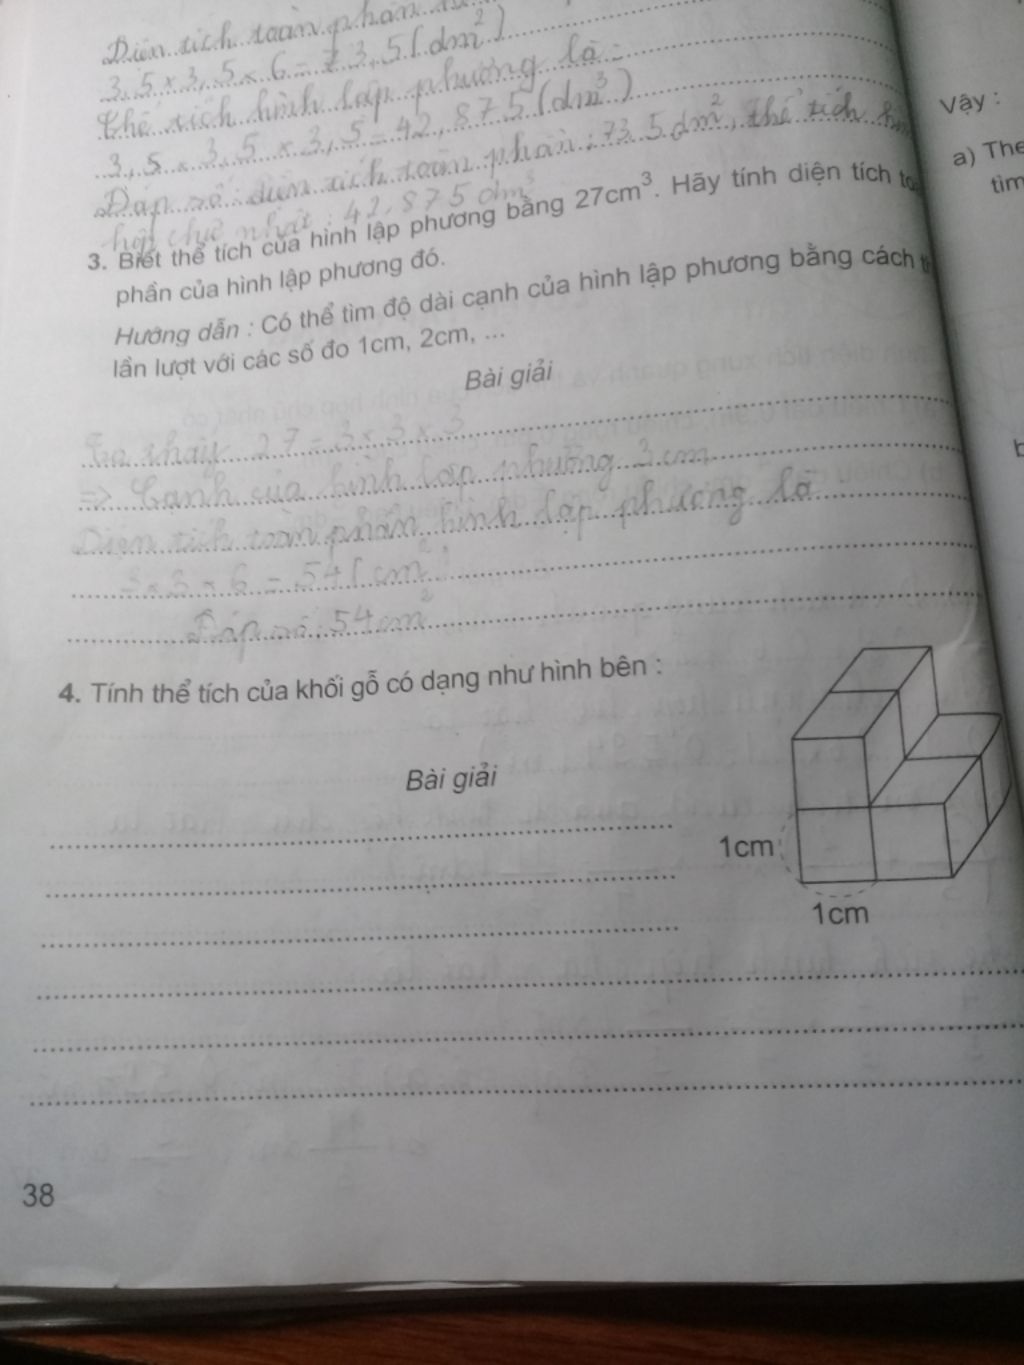 Diện tích toàn phần
3,5 × 3,5 × 6 = 73,5 (dm²)
Thể tích hình lập phương là:
3,5 × 3,5 × 3,5 = 42,875 (dm³)
Đáp số: diện tích toàn phần: 73,5 dm², thể tích
hộp chữ nhật: 42,875 dm³
3. Biết thể tích của hình lập phương bằng 27cm³. Hãy tính diện tích
phần của hình lập phương đó.
Hướng dẫn : Có thể tìm độ dài cạnh của hình lập phương bằng cách
lần lượt với các số đo 1cm, 2cm, ...
Bài giải
Ta thấy 27 = 3 × 3 × 3
=> Cạnh của hình lập phương 3 cm
Diện tích toàn phần hình lập phương là
3 × 3 × 6 = 54 (cm²)
Đáp số: 54 cm²
4. Tính thể tích của khối gỗ có dạng như hình bên :
Bài giải
1cm
1cm
38
Vậy :
a) The
tìm